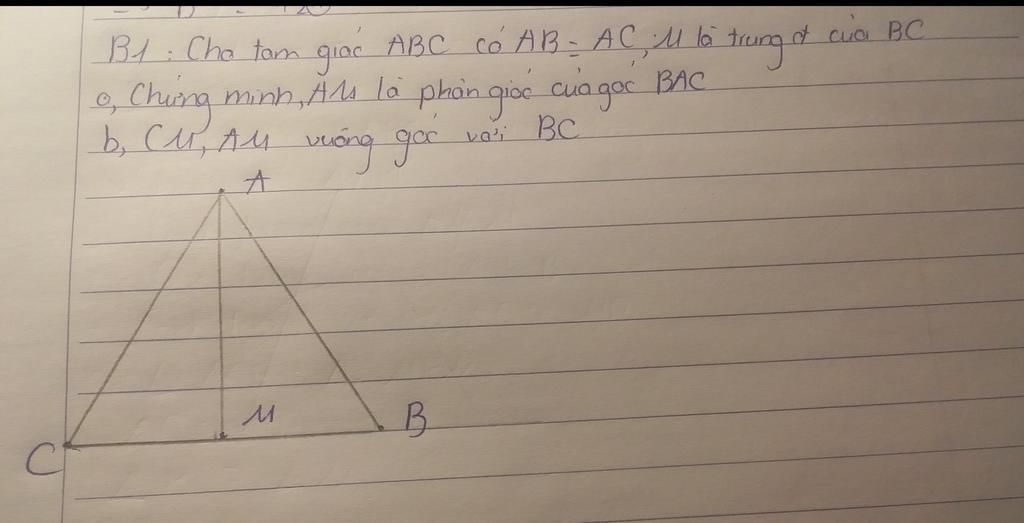 B1 : Cho tam giác ABC có AB = AC, M là trung đ của BC
a, Chứng minh, AM là phân giác của góc BAC
b, CM, AM vuông góc với BC
A
M
B
C